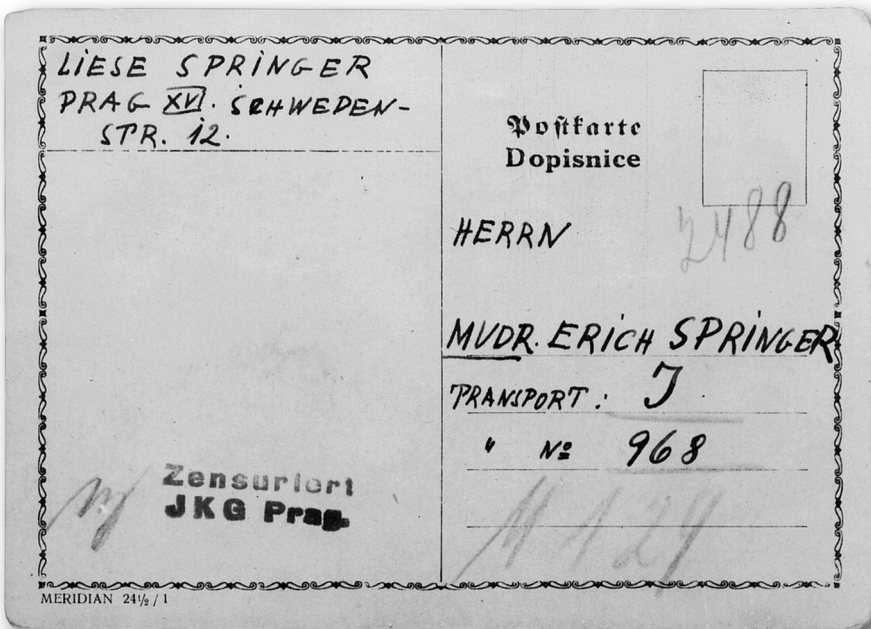 LIESE SPRINGER
PRAG XVI. SCHWEDEN-
STR. 12.
Postkarte
Dopisnice
2488
HERRN
MUDR. ERICH SPRINGER
TRANSPORT: J
" No 968
Zensuriert
JKG Prag.
MERIDIAN 24½ / 1